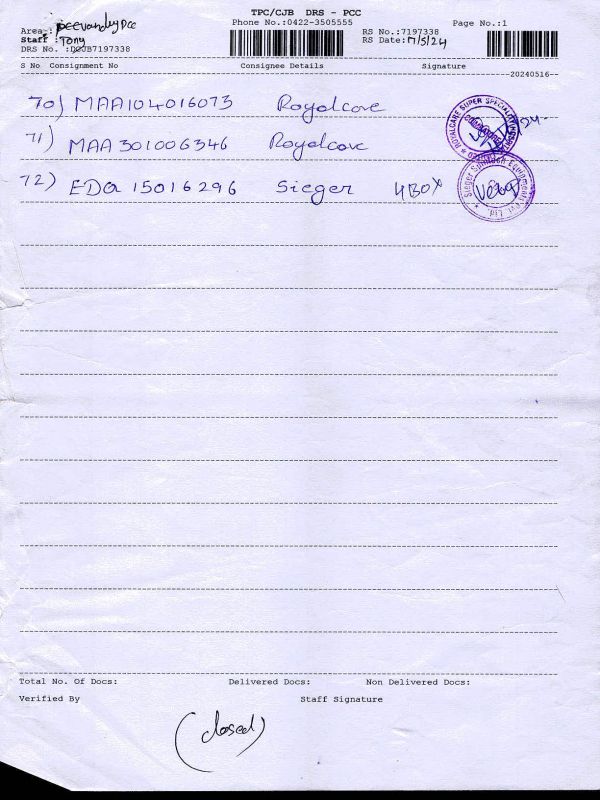 TPC/CJB DRS - PCC
Phone No.:0422-3505555
Page No.:1
Area :
Staff :Tony
DRS No. :DCJB7197338
RS No.:7197338
RS Date:17/5/24
S No Consignment No Consignee Details Signature
20240516
70) MAA104016073 Royalcare
71) MAA301006346 Royalcare
72) EDQ 15016296 Sieger 4BOX
ROYALCARE SUPER SPECIALITY
Sieger Spintech Equipments Pvt. Ltd
Total No. Of Docs: Delivered Docs: Non Delivered Docs:
Verified By Staff Signature
(closed)